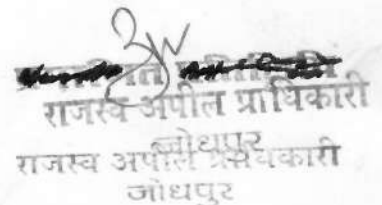 राजस्व अपील प्राधिकारी
जोधपुर
राजस्व अपील प्राधिकारी
जोधपुर